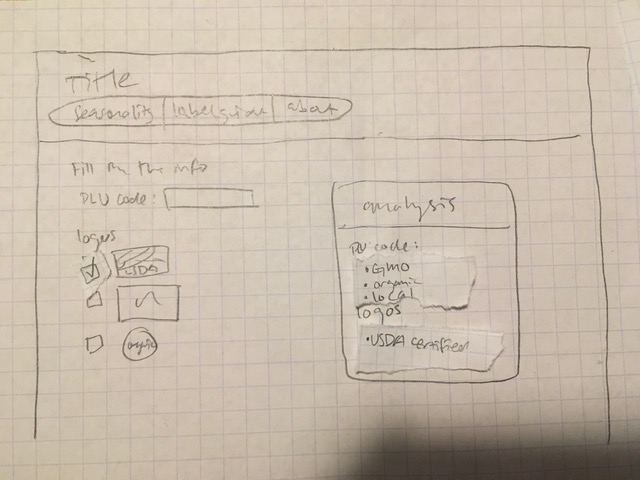 Title
seasonality
about
Fill in the info
PLU code:
logos
USDA
organic
analysis
PLU code:
• GMO
• organic
• local
logos
• USDA certified